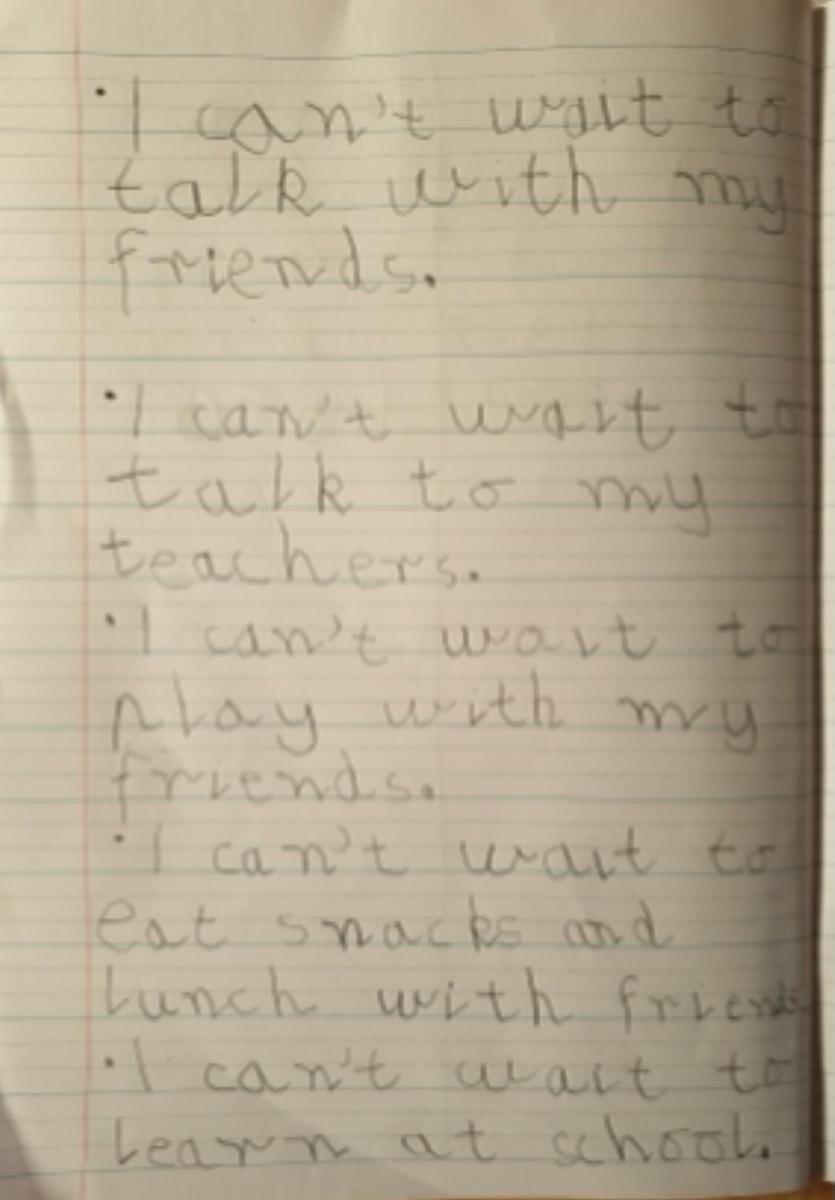 ·I can't wait to
talk with my
friends.
·I can't wait to
talk to my
teachers.
·I can't wait to
play with my
friends.
·I can't wait to
eat snacks and
lunch with friends
·I can't wait to
learn at school.